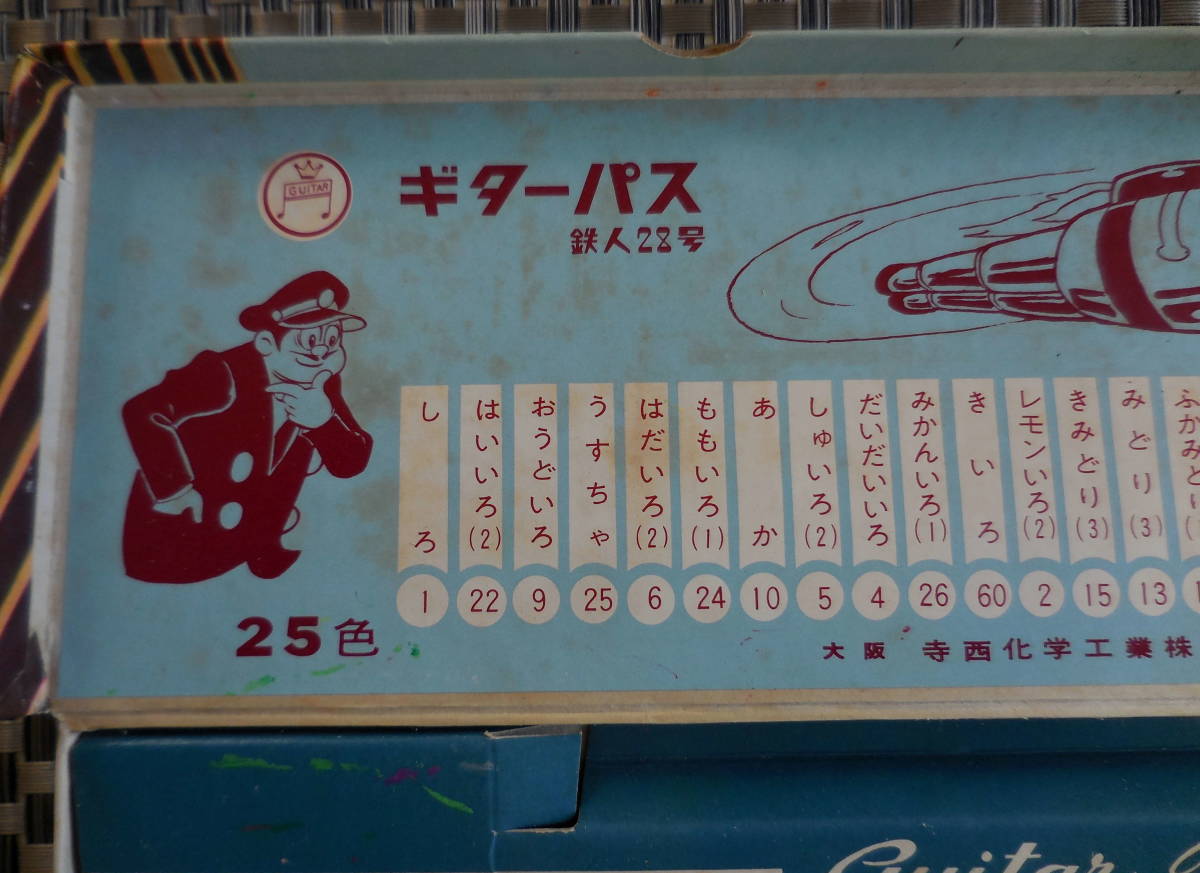 GUITAR
ギターパス
鉄人28号
しろ
はいいろ(2)
おうどいろ
うすちゃ
はだいろ(2)
ももいろ(1)
あか
しゅいろ(2)
だいだいいろ
みかんいろ(1)
きいろ
レモンいろ(2)
きみどり(3)
みどり(3)
ふかみどり
1 22 9 25 6 24 10 5 4 26 60 2 15 13
25色
大阪 寺西化学工業株
Guitar